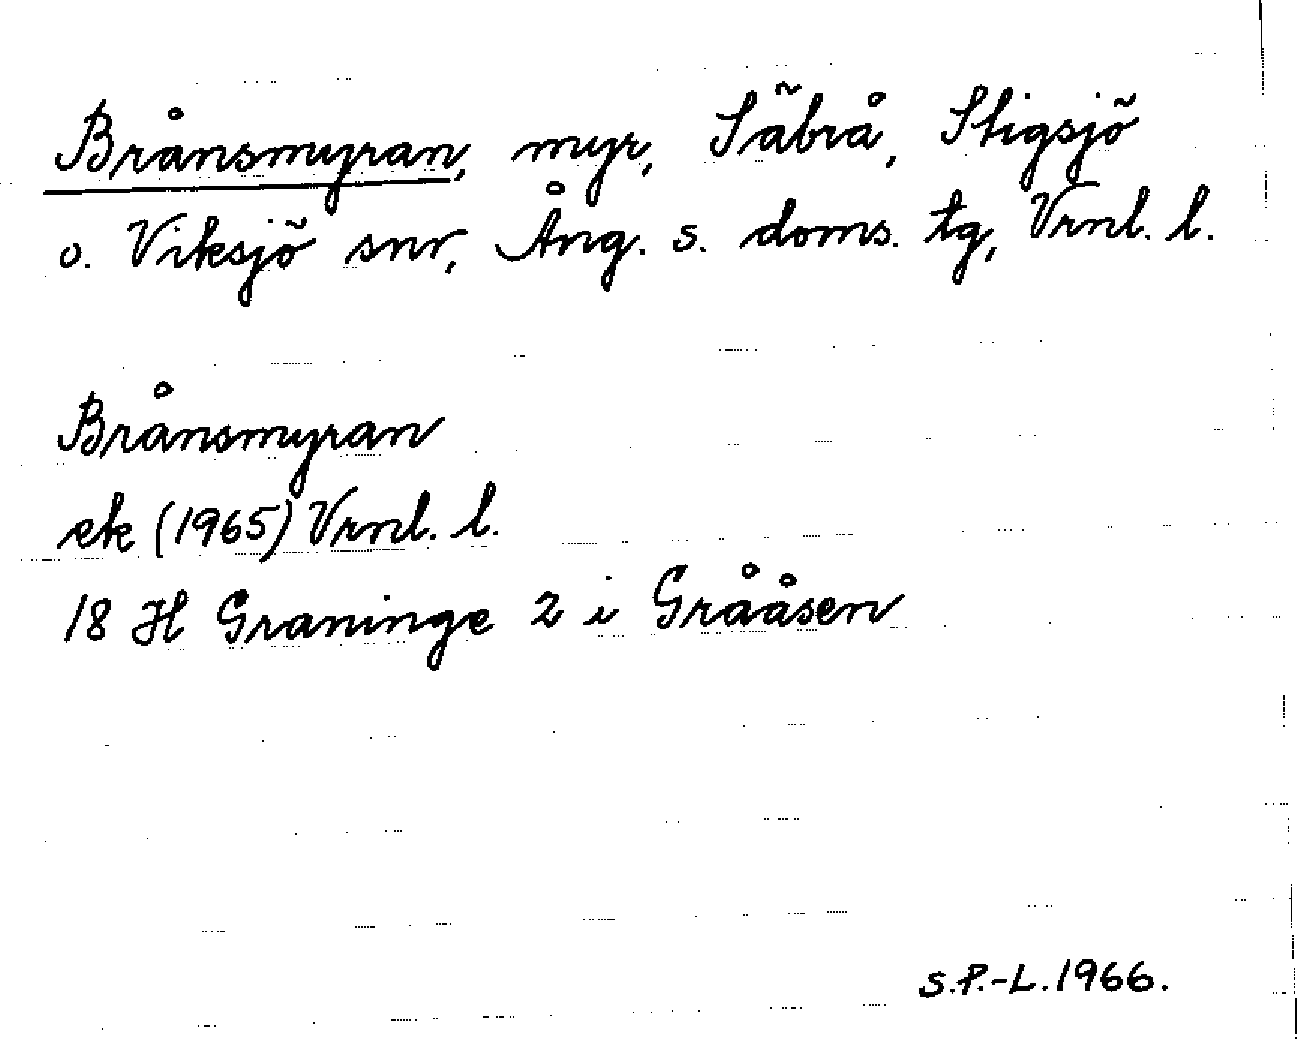 Brånsmyran, myr, Säbrå, Stigsjö
o. Viksjö snr, Ång. s. doms. tg, Vrnl. l.
Brånsmyran
ek (1965) Vrnl. l.
18 H Graninge 2 i Grååsen
S.P.-L. 1966.